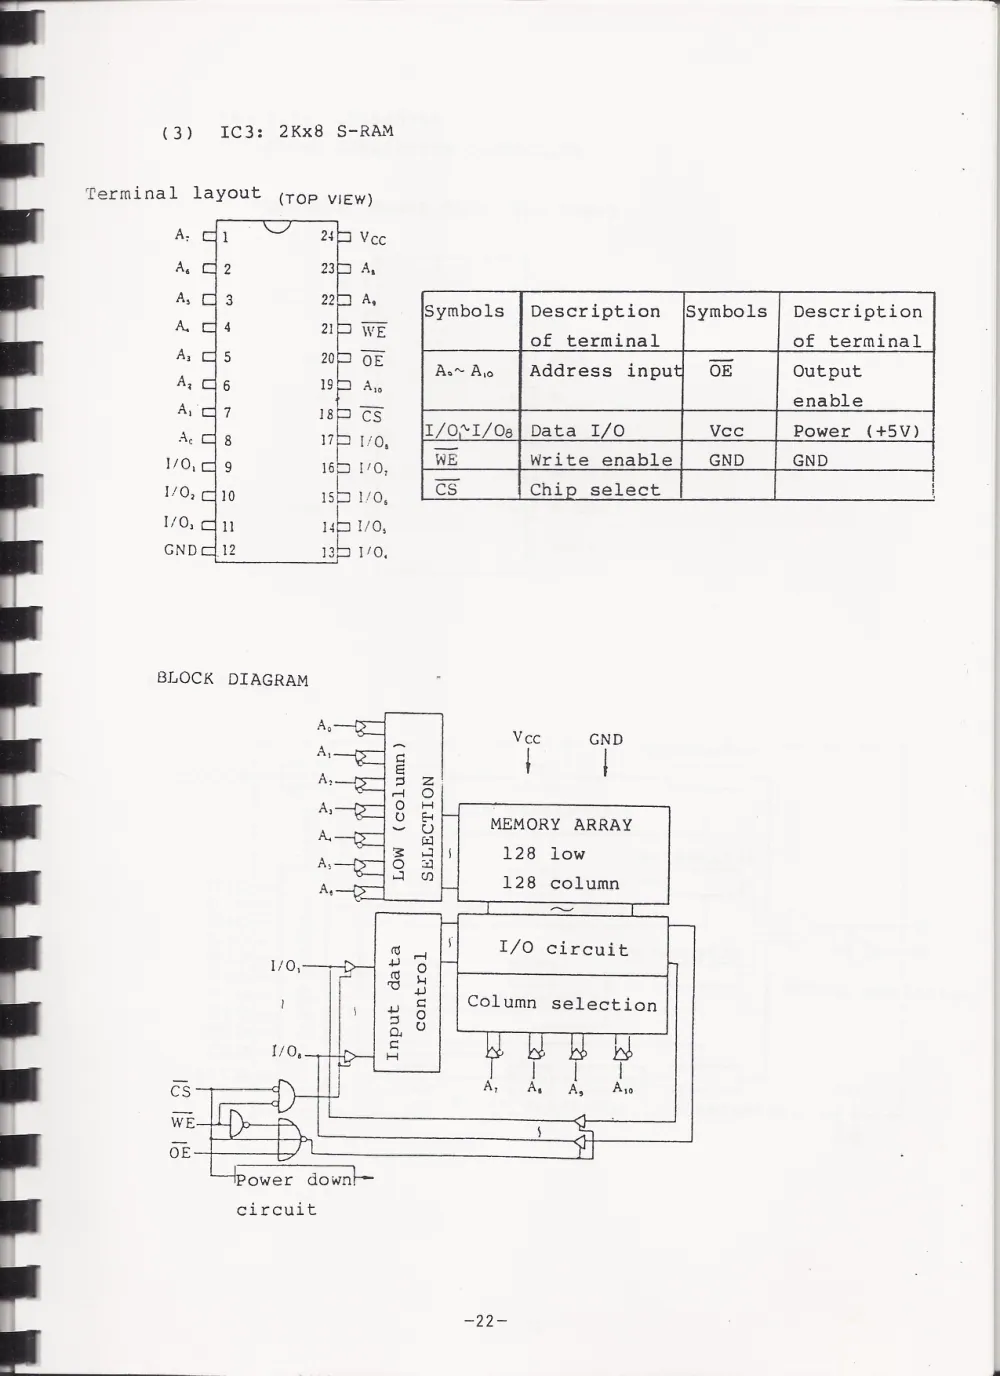 (3) IC3: 2Kx8 S-RAM
Terminal layout (TOP VIEW)
A₇ 1 24 Vcc
A₆ 2 23 A₈
A₅ 3 22 A₉
A₄ 4 21 W̅E̅
A₃ 5 20 O̅E̅
A₂ 6 19 A₁₀
A₁ 7 18 C̅S̅
A₀ 8 17 I/O₈
I/O₁ 9 16 I/O₇
I/O₂ 10 15 I/O₆
I/O₃ 11 14 I/O₅
GND 12 13 I/O₄
Symbols Description of terminal Symbols Description of terminal
A₀~A₁₀ Address input O̅E̅ Output enable
I/O₁~I/O₈ Data I/O Vcc Power (+5V)
W̅E̅ Write enable GND GND
C̅S̅ Chip select
BLOCK DIAGRAM
A₀
A₁
A₂
A₃
A₄
A₅
A₆
LOW (column)
SELECTION
Vcc GND
MEMORY ARRAY
128 low
128 column
I/O₁
~
I/O₈
Input data
control
I/O circuit
Column selection
A₇ A₈ A₉ A₁₀
C̅S̅
W̅E̅
O̅E̅
Power down
circuit
-22-